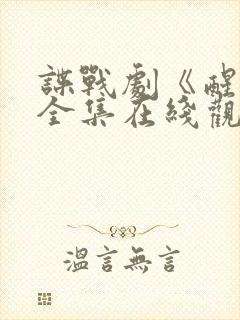 諜戰劇《醒
全集在綫觀
溫言無言